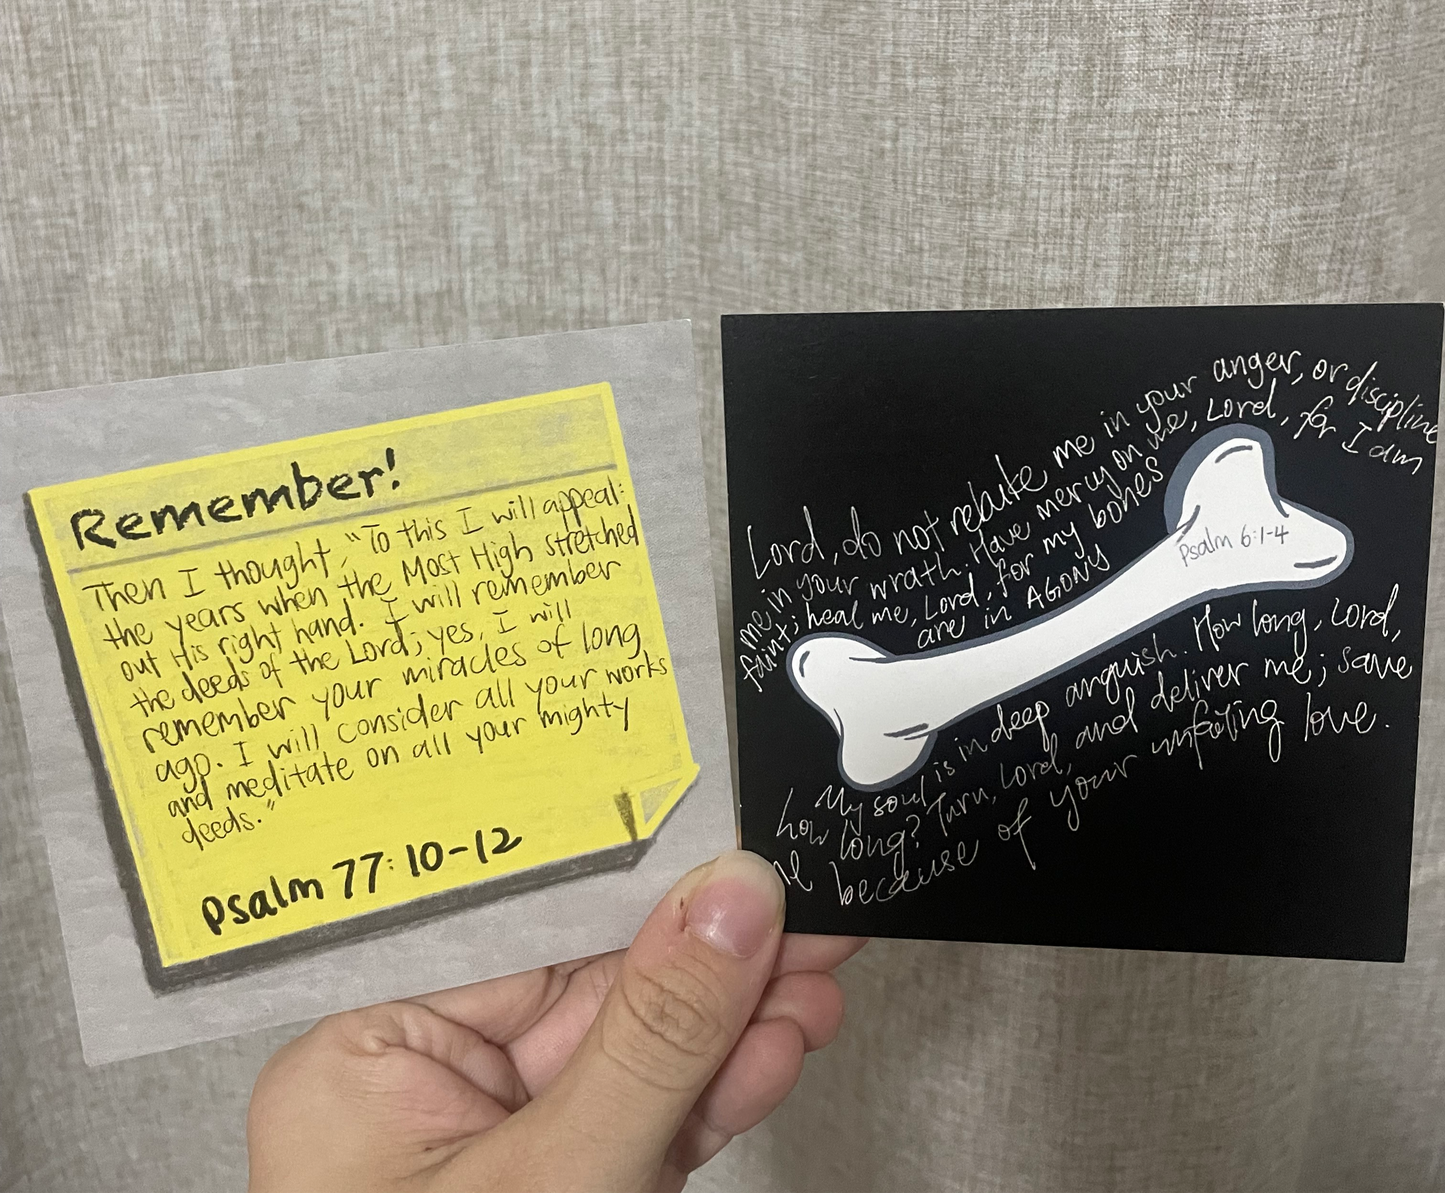 Remember!
Then I thought, "To this I will appeal:
the years when the Most High stretched
out His right hand. I will remember
the deeds of the Lord; yes, I will
remember your miracles of long
ago. I will consider all your works
and meditate on all your mighty
deeds."
Psalm 77:10-12
Lord, do not rebuke me in your anger, or discipline
me in your wrath. Have mercy on me, Lord, for I am
faint; heal me, Lord, for my bones
are in AGONY
Psalm 6:1-4
My soul is in deep anguish. How long, Lord,
how long? Turn, Lord, and deliver me; save
me because of your unfailing love.